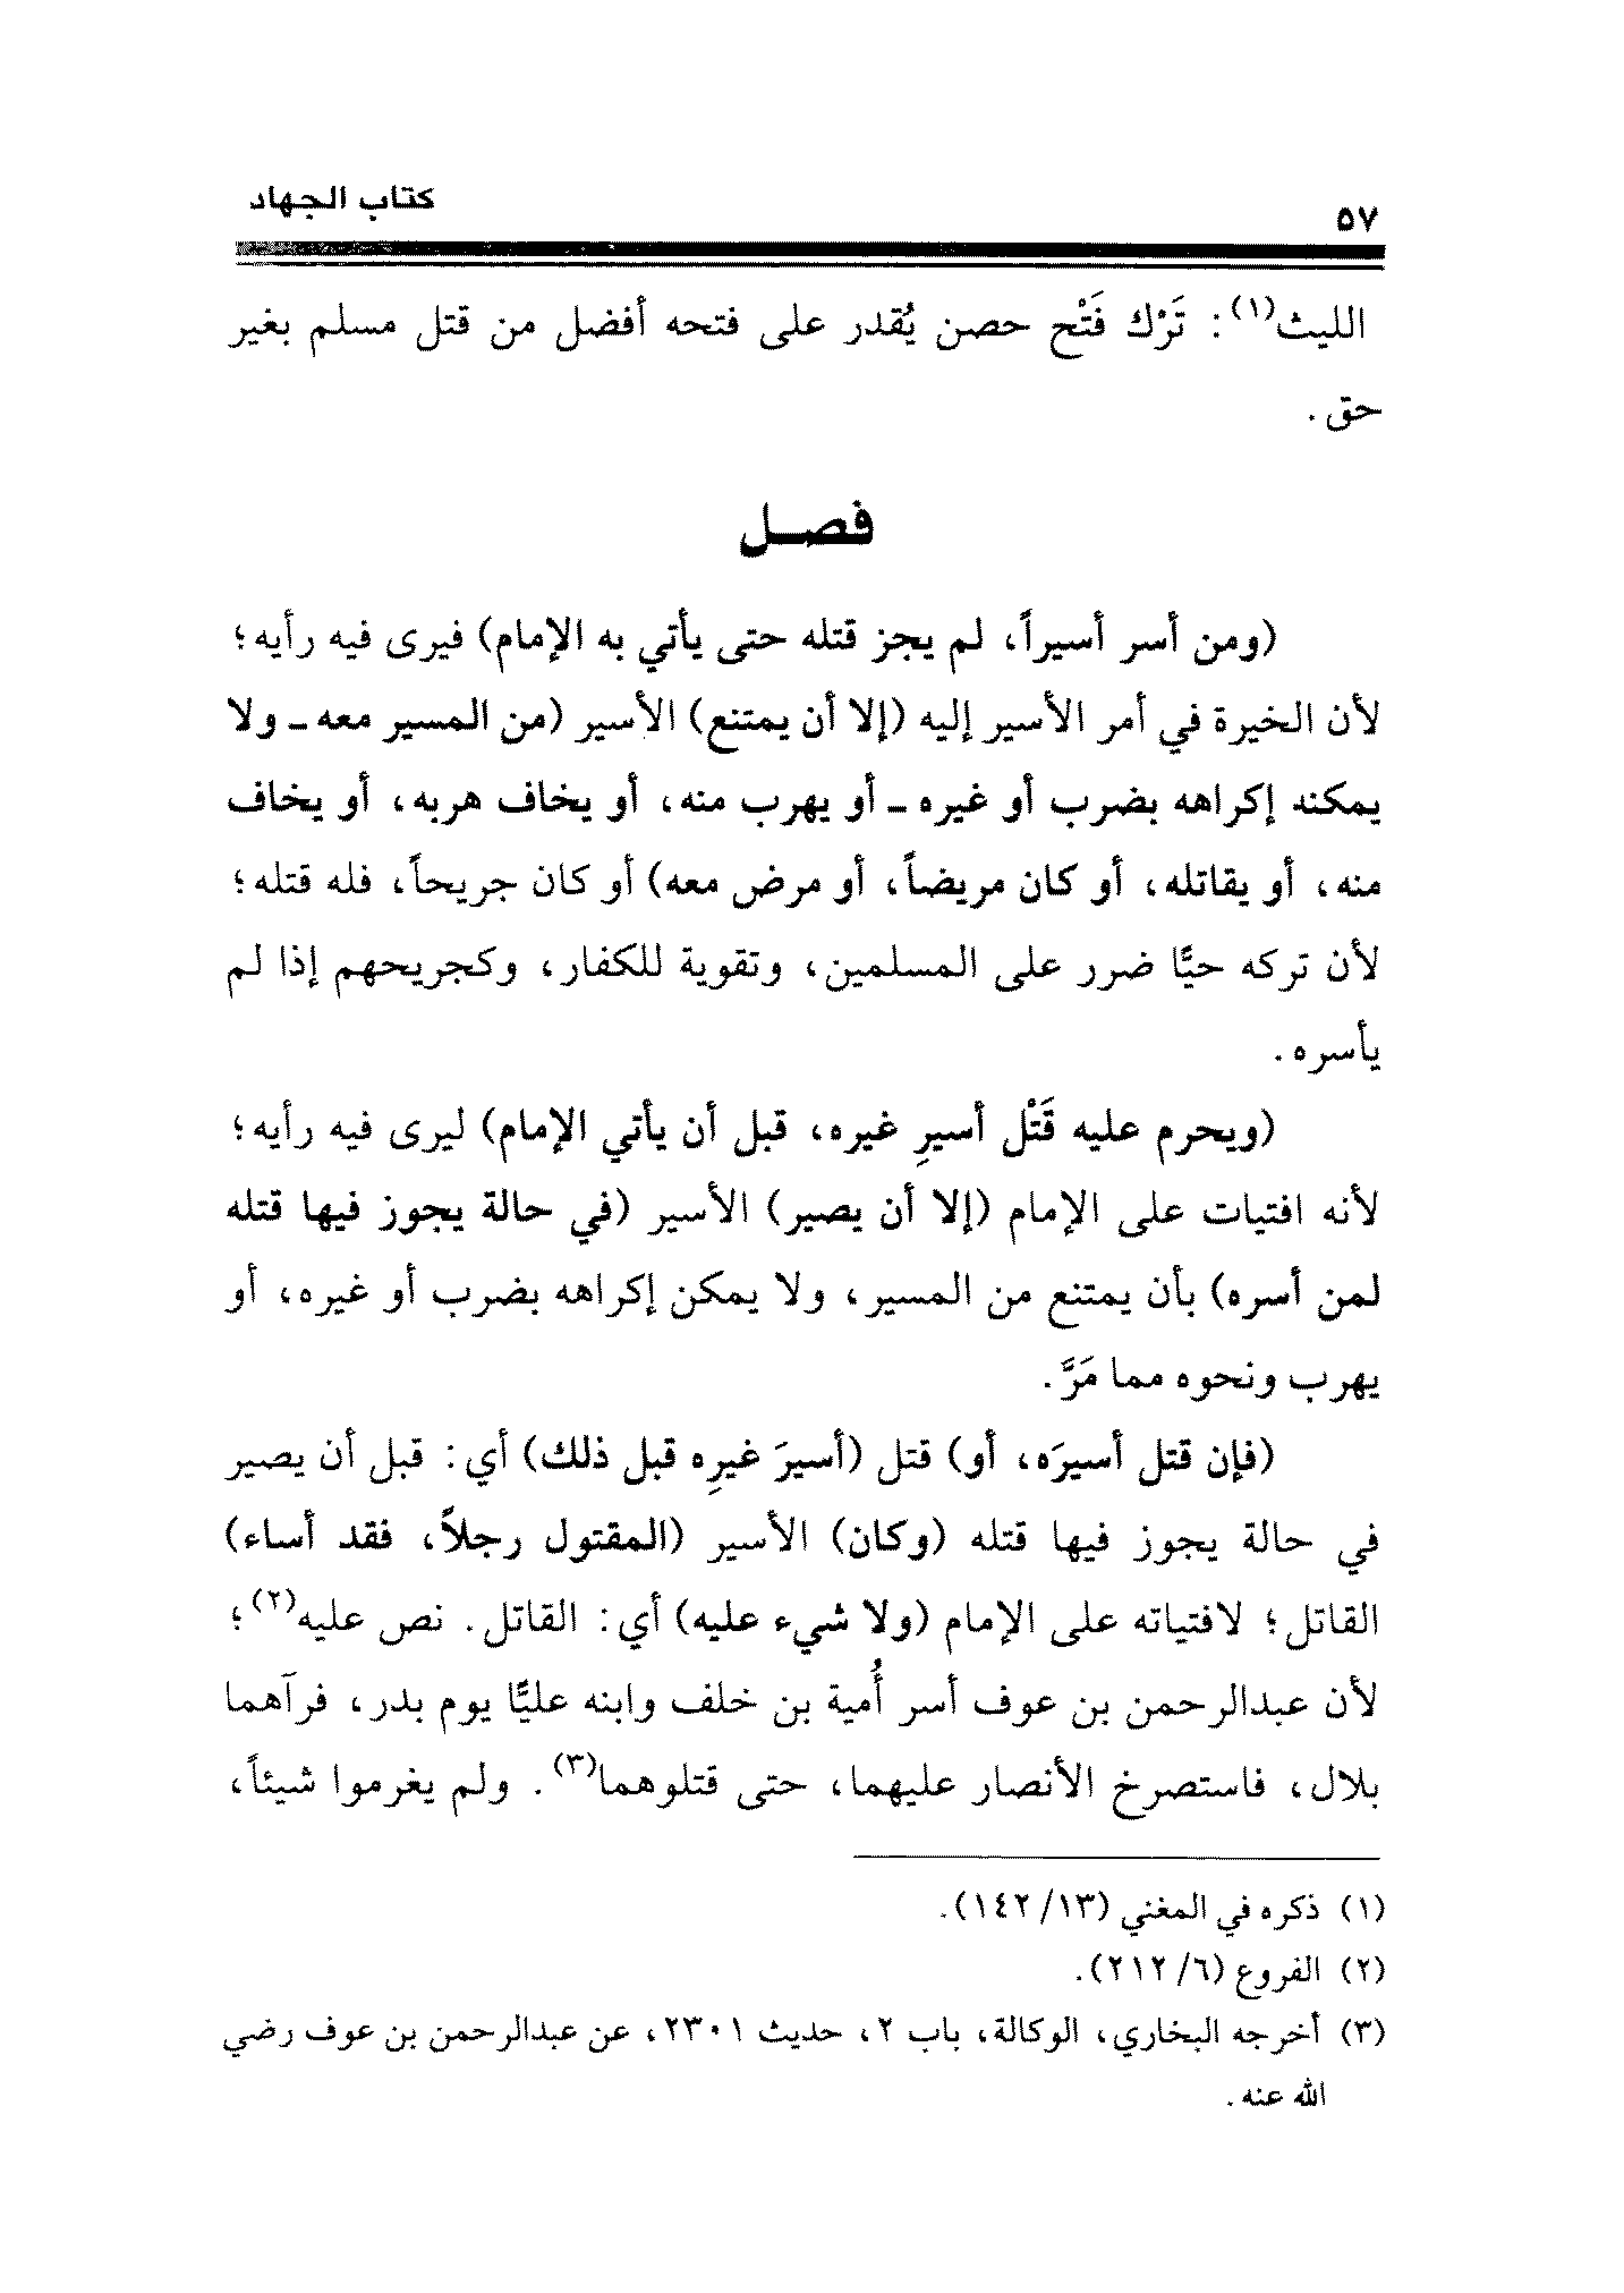 ٥٧
كتاب الجهاد
الليث(١): تَرْك فَتْح حصن يُقدر على فتحه أفضل من قتل مسلم بغير
حق.
فصـل
(ومن أسر أسيراً، لم يجز قتله حتى يأتي به الإمام) فيرى فيه رأيه؛
لأن الخيرة في أمر الأسير إليه (إلا أن يمتنع) الأسير (من المسير معه ـ ولا
يمكنه إكراهه بضرب أو غيره ـ أو يهرب منه، أو يخاف هربه، أو يخاف
منه، أو يقاتله، أو كان مريضاً، أو مرض معه) أو كان جريحاً، فله قتله؛
لأن تركه حيًّا ضرر على المسلمين، وتقوية للكفار، وكجريحهم إذا لم
يأسره.
(ويحرم عليه قَتْل أسيرِ غيره، قبل أن يأتي الإمام) ليرى فيه رأيه؛
لأنه افتيات على الإمام (إلا أن يصير) الأسير (في حالة يجوز فيها قتله
لمن أسره) بأن يمتنع من المسير، ولا يمكن إكراهه بضرب أو غيره، أو
يهرب ونحوه مما مَرَّ.
(فإن قتل أسيرَه، أو) قتل (أسيرَ غيرِه قبل ذلك) أي: قبل أن يصير
في حالة يجوز فيها قتله (وكان) الأسير (المقتول رجلاً، فقد أساء)
القاتل؛ لافتياته على الإمام (ولا شيء عليه) أي: القاتل. نص عليه(٢)؛
لأن عبدالرحمن بن عوف أسر أُمية بن خلف وابنه عليًّا يوم بدر، فرآهما
بلال، فاستصرخ الأنصار عليهما، حتى قتلوهما(٣). ولم يغرموا شيئاً،
(١) ذكره في المغني (١٣/ ١٤٢).
(٢) الفروع (٦/ ٢١٢).
(٣) أخرجه البخاري، الوكالة، باب ٢، حديث ٢٣٠١، عن عبدالرحمن بن عوف رضي
الله عنه.